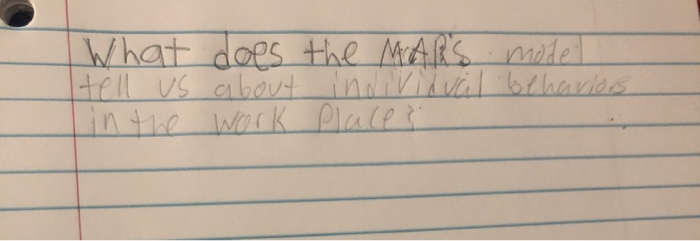 What does the MARS model
tell us about individual behaviors
in the work place?